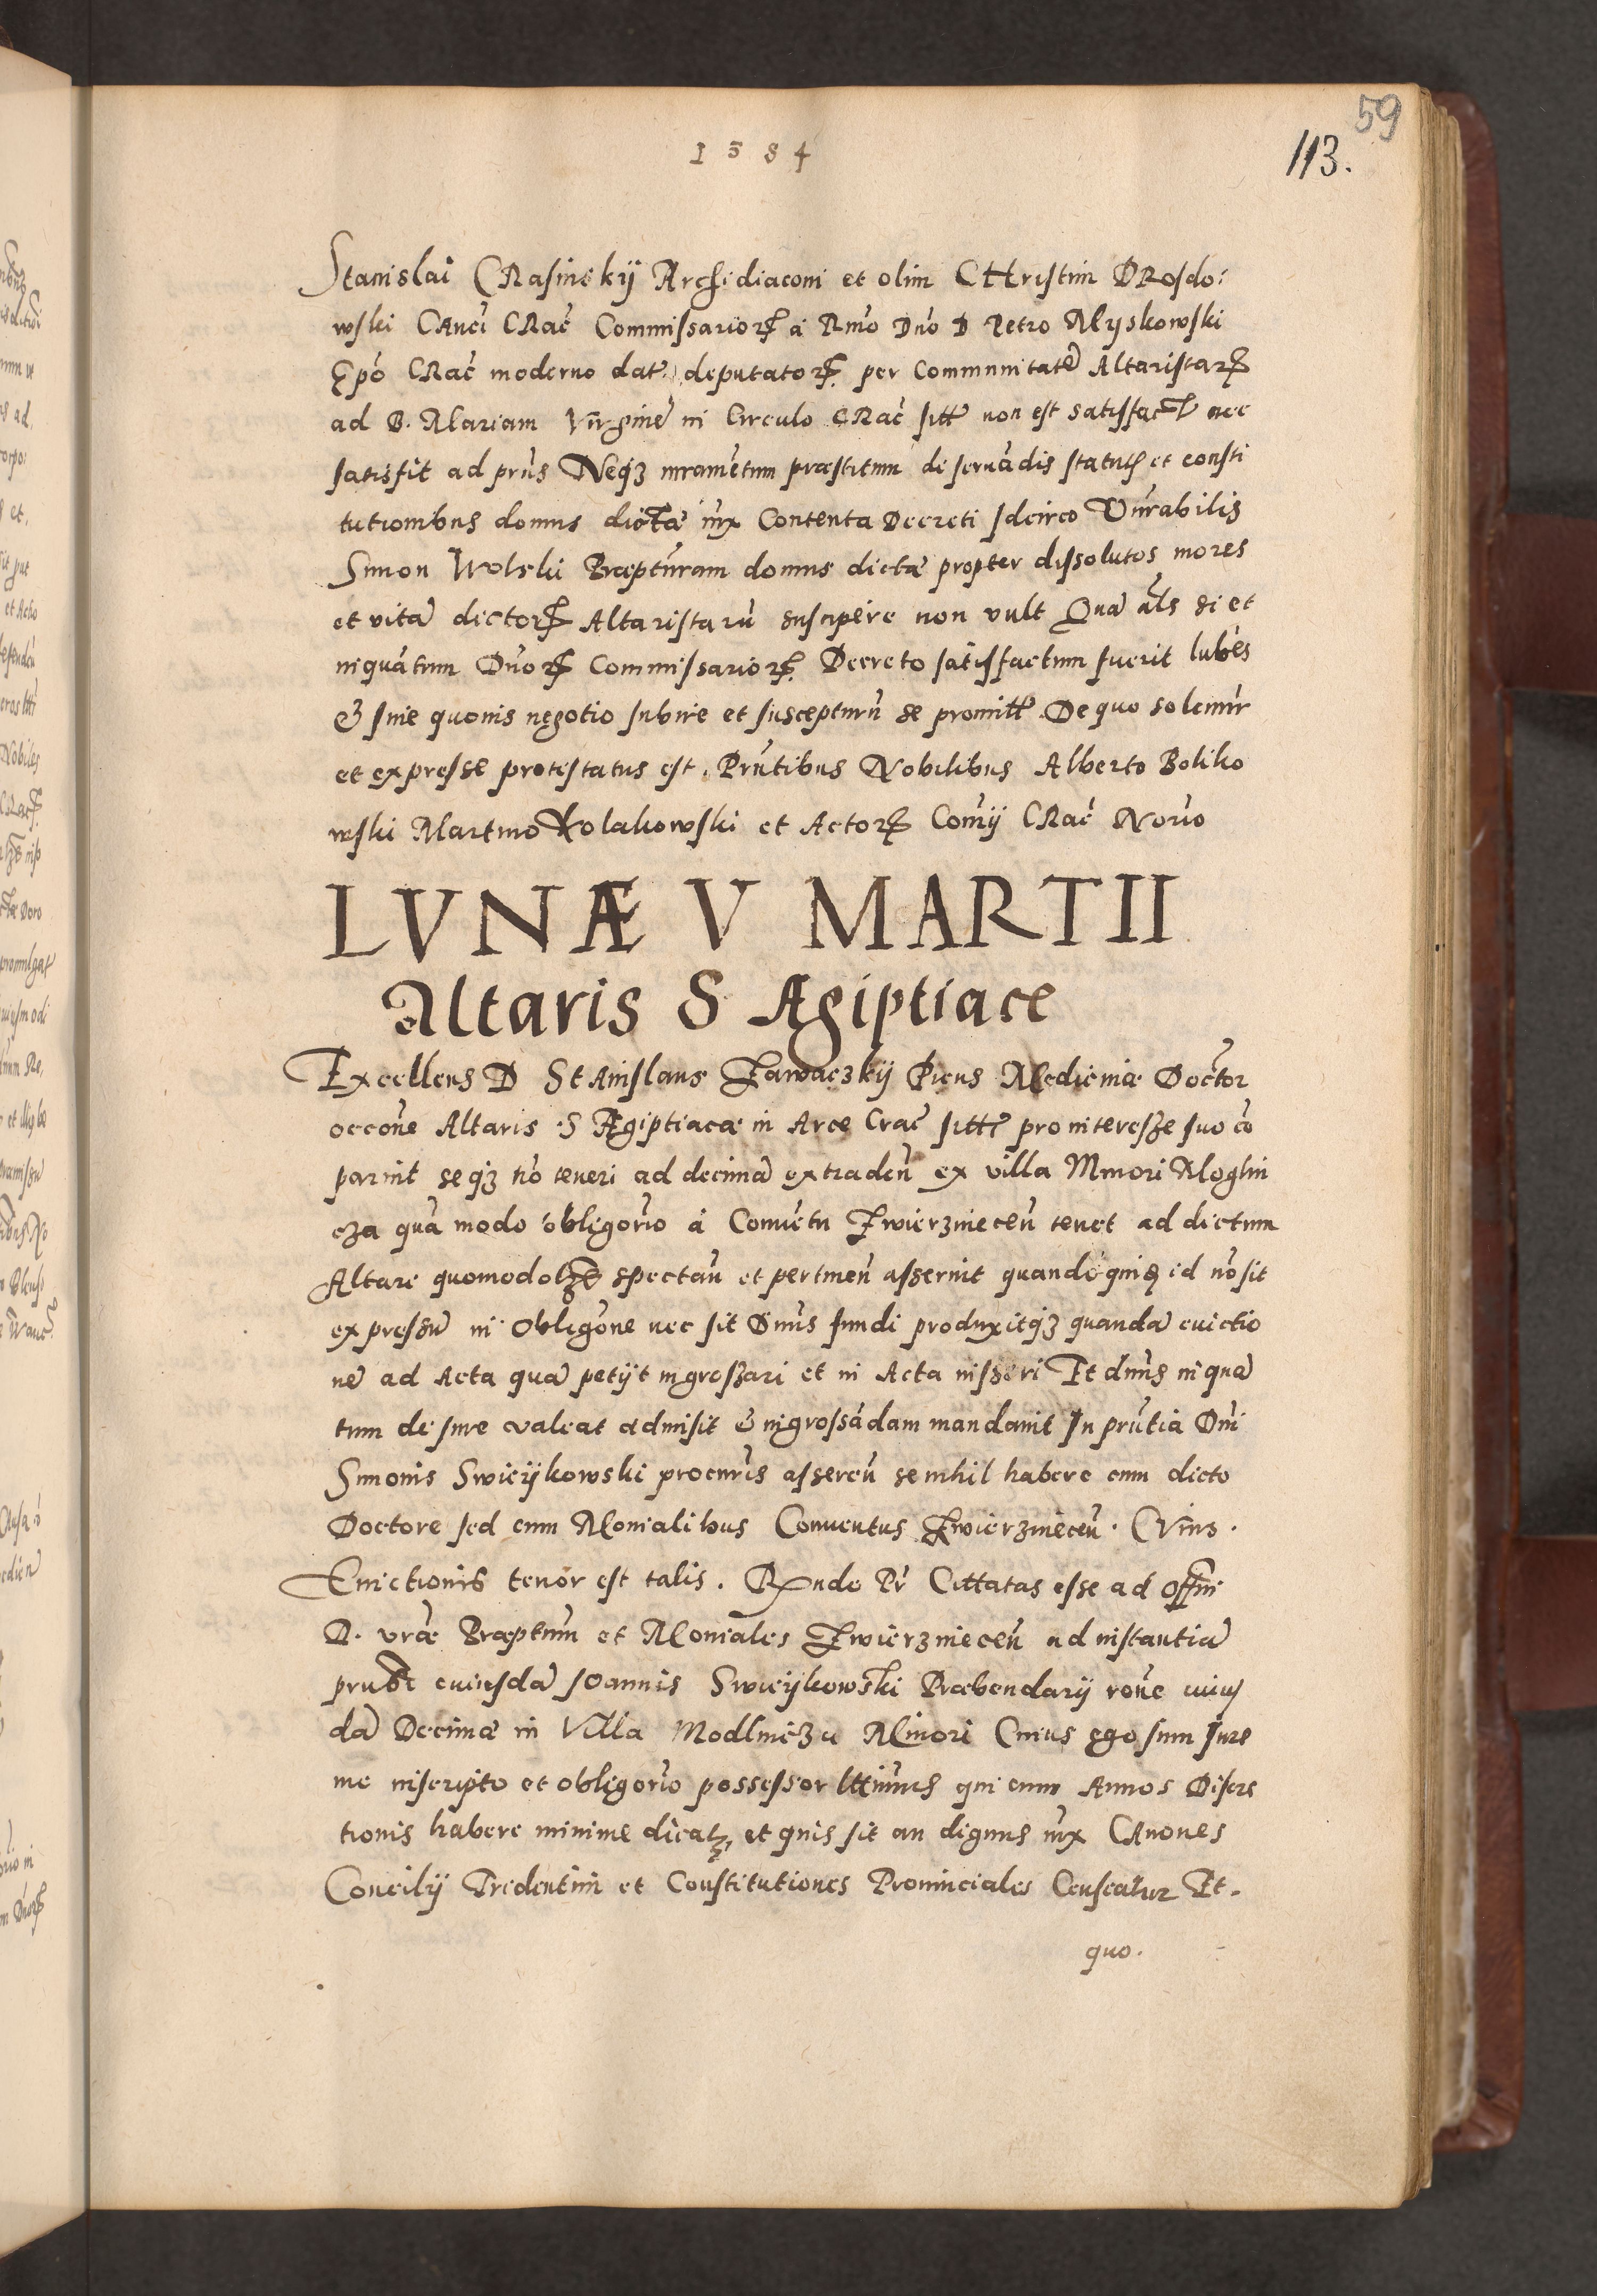 59
1584
113.
Stanislai CRasinskij Archidiaconi et olim CHristini DRosdo:
wski CAnci CRac̃ Commissarioꝝ á Rm̃o Dño D Petro Myskowski
Ep̃o CRac̃ moderno dat̃ deputatoꝝ per Communitatẽ Altaristaꝝ
ad B. Mariam Virginẽ in Circulo CRac̃ sitt̃ non est satisfact̃ nec
satisfit ad prũs Neqꝫ iuramẽtum præstitum de seruãdis statutis et consti
tutionibus domus dictæ iux̃ Contenta Decreti Idcirco Vñrabilis
Simon Wolski Præptũram domus dictæ propter dissolutos mores
et vitã dictoꝝ Altaristarũ suscipere non vult Quã al̃s si et
inquãtum Dñoꝝ Commissarioꝝ Decreto satisfactum fuerit lubẽs
& sine quouis negotio subire et suscepturũ se promitt̃ De quo solemñr
et expresse protestatus est. Prñtibus Nobilibus Alberto Boliko
wski Martino Kolakowski et Actoꝝ Coñij CRac̃ Notr̃io
LVNÆ V MARTII
Altaris S Ægiptiace
Excellens D StAnislaus Zawaczkij Picus Medicinæ Doctor
occoñe Altaris S Ægiptiacæ in Arce Crac̃ sitt̃ pro interesse suo cõ
paruit seqꝫ nõ teneri ad decimã extradeñ ex villa Minori Moglin
cza quã modo obligor̃io á Conuẽtu Zwierzynieceñ tenet ad dictum
Altare quomodolꝫ spectañ et pertineñ asseruit quandoquiđ id nõ sit
expressũ in Obligoñe nec sit Dñus fundi produxitqꝫ quandã euictio
nẽ ad Acta quã petijt ingrossari et in Acta inseri Et dñus inquã
tum de iure valeat admisit & ingrossãdam mandauit In prñtia Dñi
Simonis Swieykowski procuris assereñ se nihil habere cum dicto
Doctore sed cum Monialibus Conuentus Zwierzynieceñ. CVius.
Euictionis tenor est talis. Rñde Pr̃ Cittatas esse ad Offm
R. vræ Præptam et Moniales Zwierzynieceñ ad instantiã
cuiusdã IOannis Swieykowski Præbendarij roñe cuius
dã Decimæ in Villa Modlniczꝫa Minori Cuius ego sum Iure
me inscripto et obligor̃io possessor ltt̃imus qui cum Annos Discre
tionis habere minime dicat̃, et quis sit an dignus iux̃ CAnones
Concilij Tredentini et Constitutiones Prouinciales Censeatur Et.
quo.